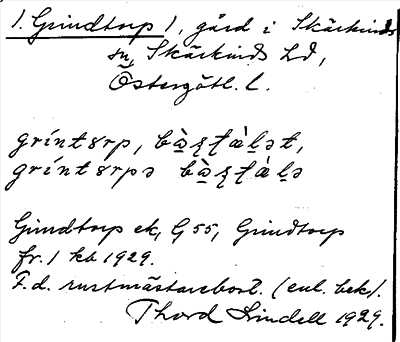 1. Grindtorp 1, gård i Skärkinds
sn, Skärkinds hd,
Östergötl. l.
grínt8rp,
grínt8rpə
Grindtorp ek, G 55, Grindtorp
fr. 1 kb 1929.
F.d. rustmästarebost. (enl. bek.).
Thord Lindell 1929.